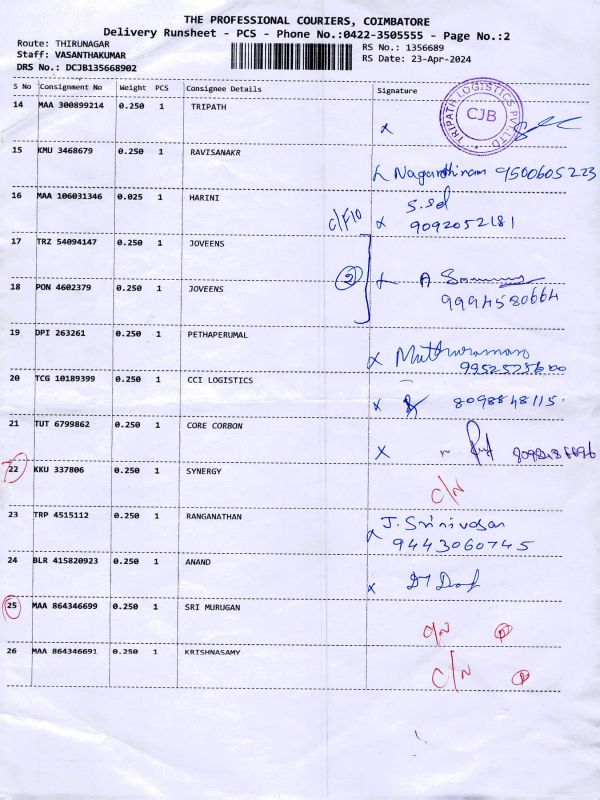 THE PROFESSIONAL COURIERS, COIMBATORE
Delivery Runsheet - PCS - Phone No.:0422-3505555 - Page No.:2
Route: THIRUNAGAR
Staff: VASANTHAKUMAR
DRS No.: DCJB135668902
RS No.: 1356689
RS Date: 23-Apr-2024
S No Consignment No Weight PCS Consignee Details Signature
14 MAA 300899214 0.250 1 TRIPATH x
TRIPATH LOGISTICS PVT LTD
CJB
15 KMU 3468679 0.250 1 RAVISANAKR
9500605223
16 MAA 106031346 0.025 1 HARINI
9092052181
17 TRZ 54094147 0.250 1 JOVEENS
2
18 PON 4602379 0.250 1 JOVEENS
9994580664
19 DPI 263261 0.250 1 PETHAPERUMAL
x Muthuraman
20 TCG 10189399 0.250 1 CCI LOGISTICS
x 8098848115.
21 TUT 6799862 0.250 1 CORE CORBON
x
22 KKU 337806 0.250 1 SYNERGY
C/N
23 TRP 4515112 0.250 1 RANGANATHAN
x J. Srinivasan
9443060745
24 BLR 415820923 0.250 1 ANAND
x
25 MAA 864346699 0.250 1 SRI MURUGAN
26 MAA 864346691 0.250 1 KRISHNASAMY
C/N